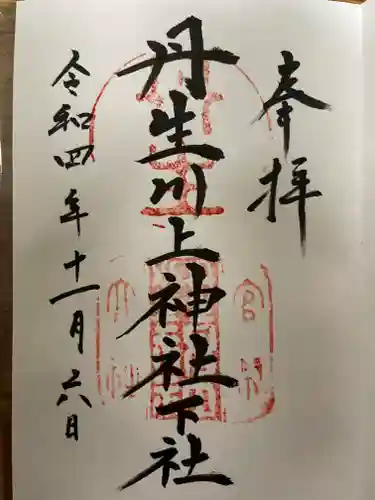 奉拝
丹生川上神社下社
令和四年十一月六日